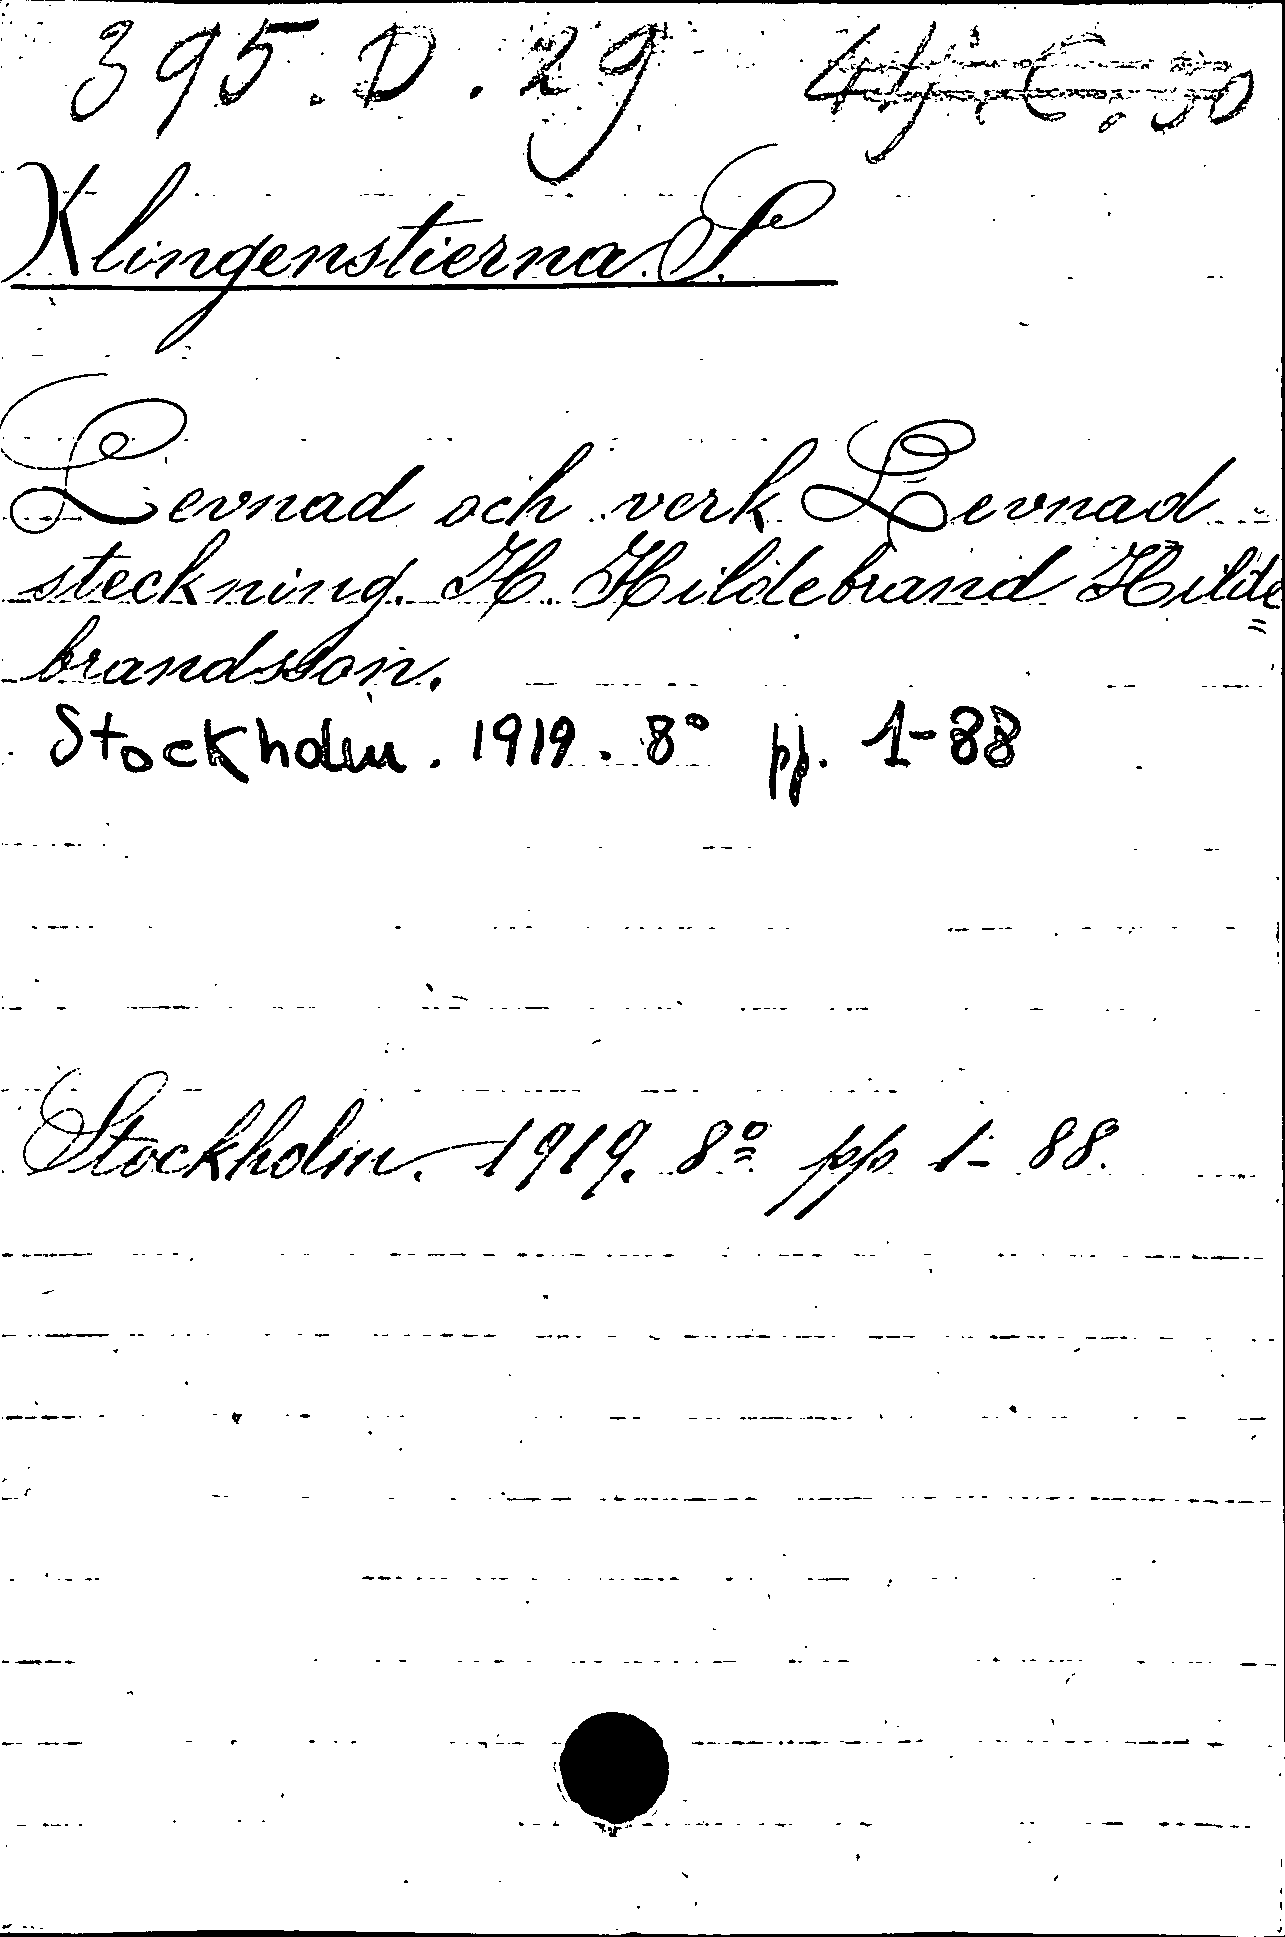 395.D.29
Klingenstierna. S.
Levnad och verk Levnad
steckning. H. Hildebrand Hilde=
brandsson.
Stockholm. 1919. 8° pp. 1-88
Stockholm. 1919. 8º pp 1-88.